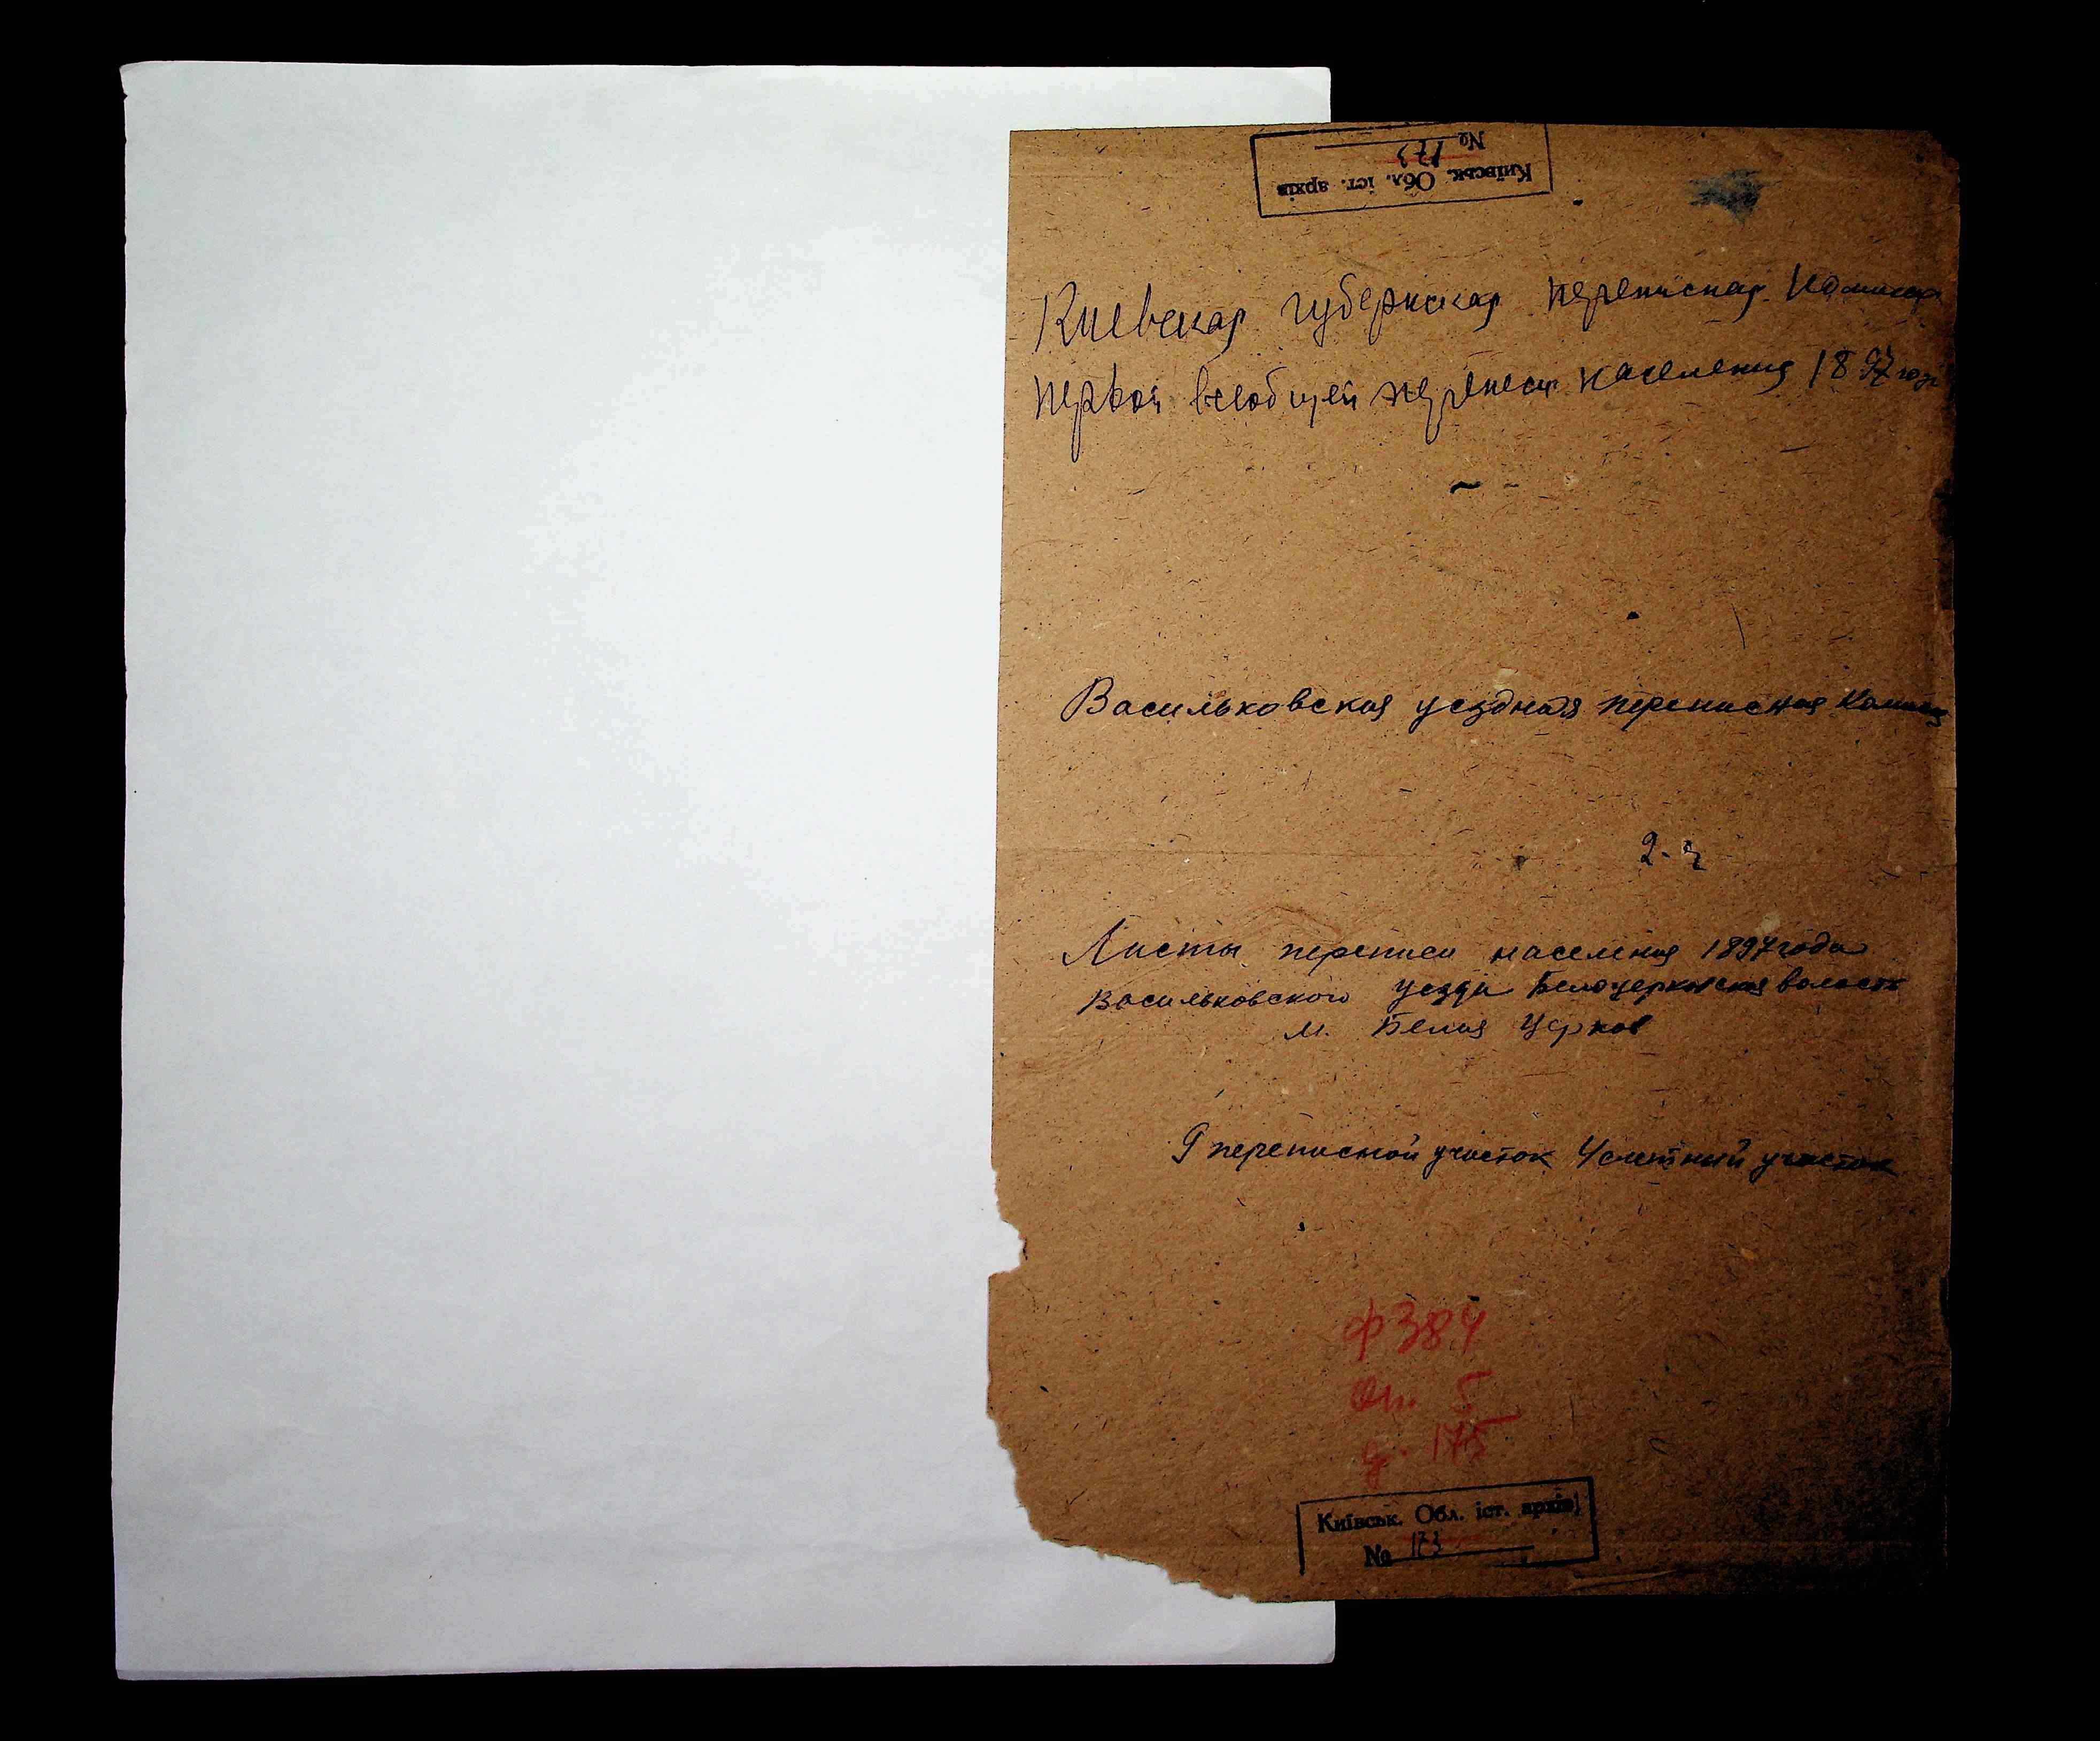 Київськ. Обл. іст. архів
№ 173
Киевская губернская переписная
первой всеобщей переписи населения 1897 года
Васильковская уездная переписная
Листы переписи населения 1897 года
Васильковского уезда Белоцерковская волость
м. Белая Церков
9 переписной участок 4 счетный участок
ф 384
оп. 5
д. 175
Київськ. Обл. іст. архів
№ 173